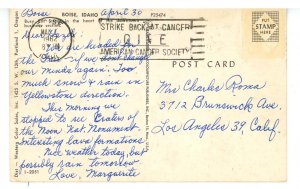 Boise, April 30
BOISE, IDAHO
P25474
STRIKE BACK AT CANCER
GIVE
AMERICAN CANCER SOCIETY
PUT
STAMP
HERE
POST CARD
We are headed for
if we don't change
our minds again. Too
much snow & rain in
Yellowstone direction.
This morning we
stopped to see Craters of
the Moon Nat. Monument.
Interesting lava formations.
Nice weather today, but
possibly rain tomorrow
Love, Marguerite
Mrs Charles Roma
3712 Brunswick Ave
Los Angeles 39, Calif.